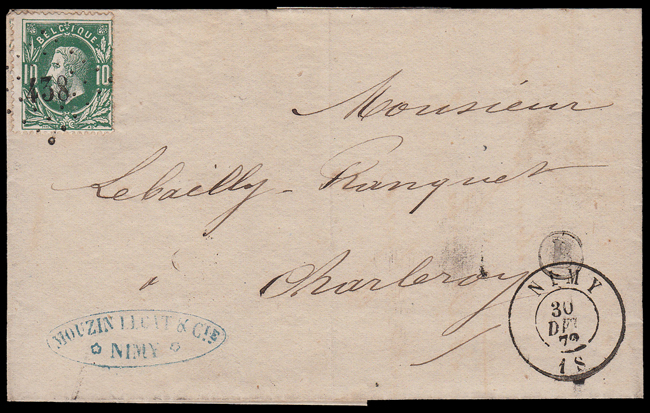 BELGIQUE
10 10
438
Monsieur
Lebailly-Ranquet
à Charleroy
MOUZIN LECAT & CIE
NIMY
NIMY
30
DEC
1 S